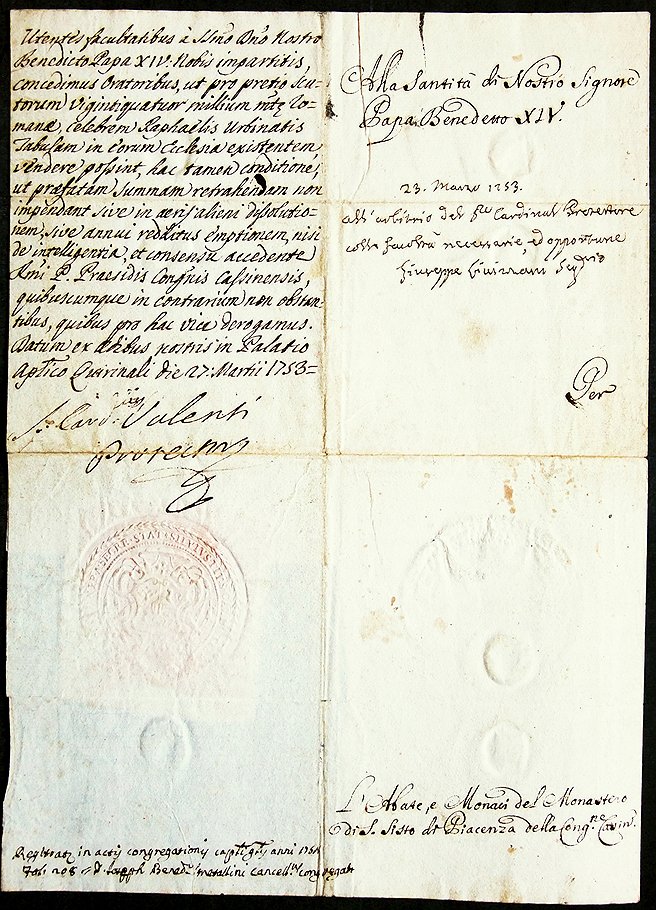 Utentes facultatibus à SSmo Dno Nostro
Benedicto Papa XIV. Nobis impartitis,
concedimus Oratoribus, ut pro pretio Scu-
torum Vigintiquatuor millium mtæ Ro-
manæ, celebrem Raphaelis Urbinatis
Tabulam in eorum Ecclesia existentem
vendere possint, hac tamen conditione,
ut præfatam Summam retrahendam non
impendant sive in æris alieni dissolutio-
nem, sive annui redditus emptionem, nisi
de intelligentia, et consensu accedente
Rmi P. Præsidis Congnis Cassinensis,
quibuscumque in contrarium non obstan-
tibus, quibus pro hac vice derogamus.
Datum ex ædibus nostris in Palatio
Aplico Quirinali die 27. Martii 1753=
Card. Valenti
Protector
STAT
Registrat in actis congregationis anni
Fol. 208 Joseph Bened. Cancell.
Alla Santità di Nostro Signore
Papa Benedetto XIV.
23. Marzo 1753.
All' arbitrio del Cardinal Protettore
colle facoltà necessarie, ed opportune
Giuseppe
Per
L'Abate, e Monaci del Monastero
di S. Sisto di Piacenza della Cong.ne Casin.